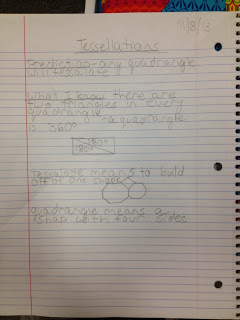 11/8/13
Tessellations
Prediction-any quadrangle
will tessalate
What I know there are
two triangles in every
quadrangle
-a quadrangle
is 360°
180°
180°
Tescalate means to build
off of one shape
quadrangle means a
shap with four sides